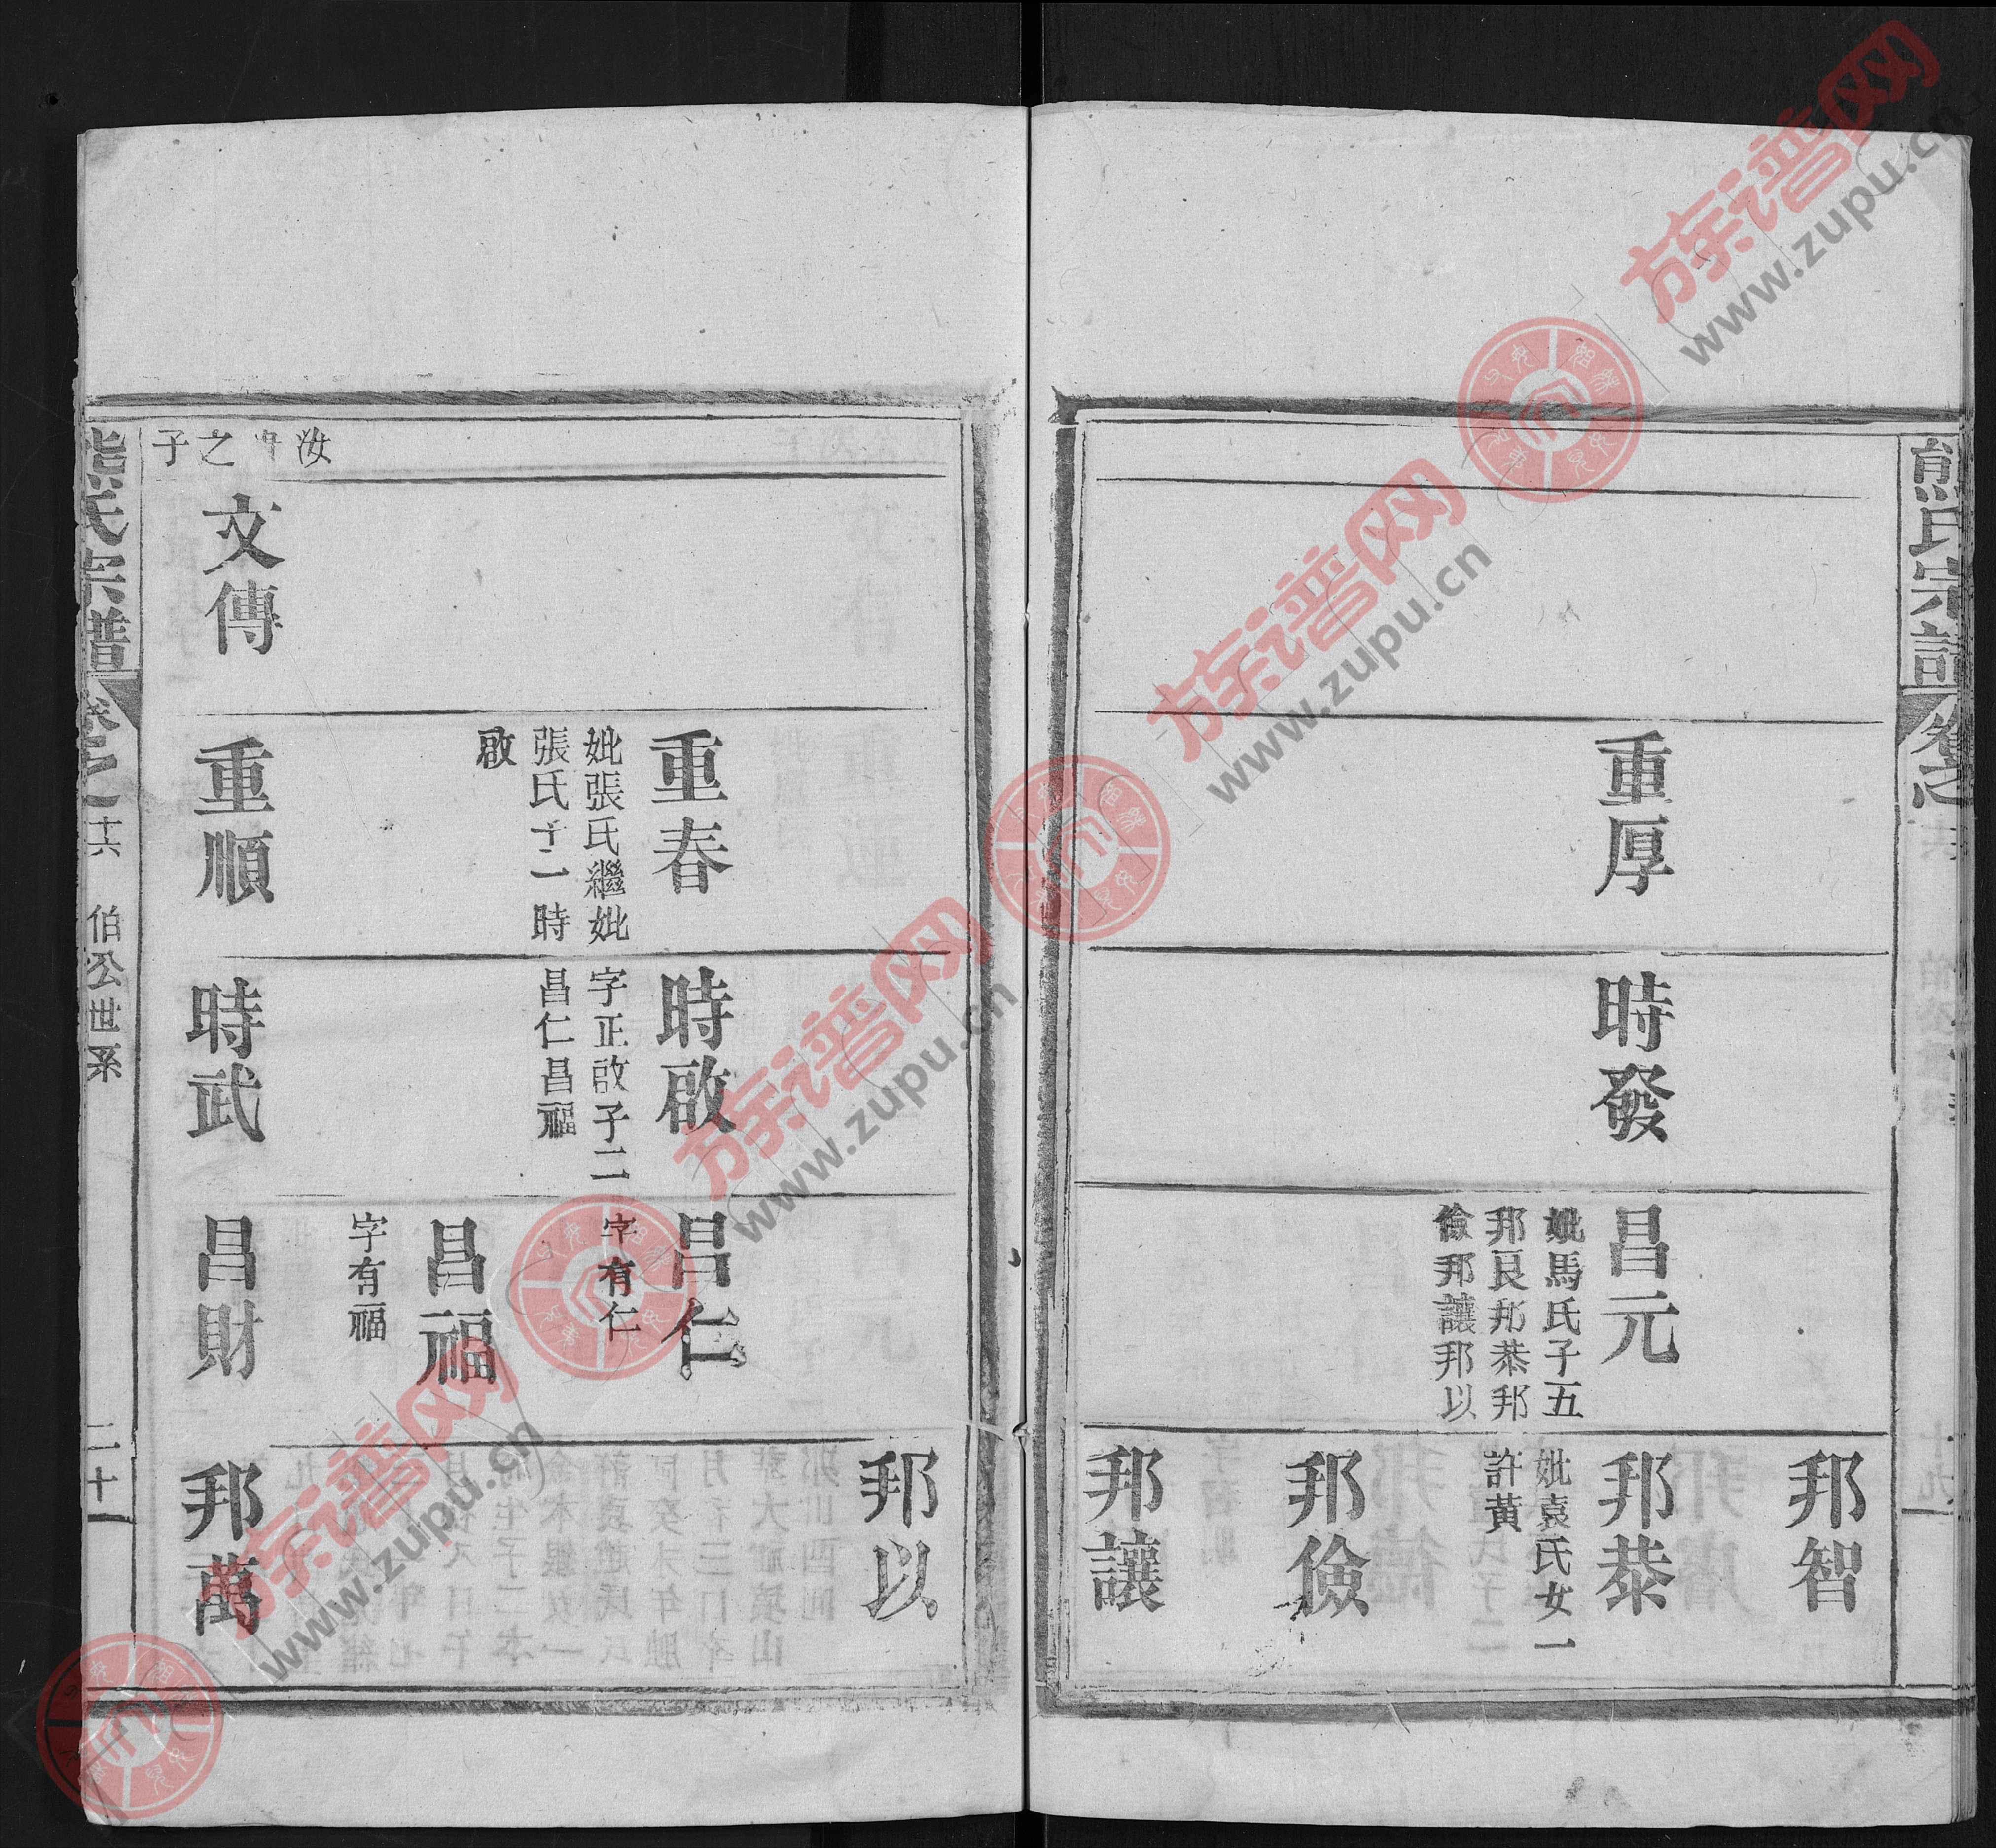 熊氏宗譜
卷之
重厚
時發
昌元
妣馬氏子五
邦良邦恭邦
儉邦讓邦以
邦智
邦恭
妣袁氏女一
許黃
邦儉
邦讓
重春
妣張氏繼妣
張氏子一時
啟
時啟
字正啟子二
昌仁昌福
昌仁
字有仁
昌福
字有福
邦以
汝 之子
文傳
重順
時武
昌財
邦萬
熊氏宗譜
卷之十六
伯公世系
二十一
族谱网
www.zupu.cn
族谱网
www.zupu.cn
族谱网
www.zupu.cn
族谱网
www.zupu.cn